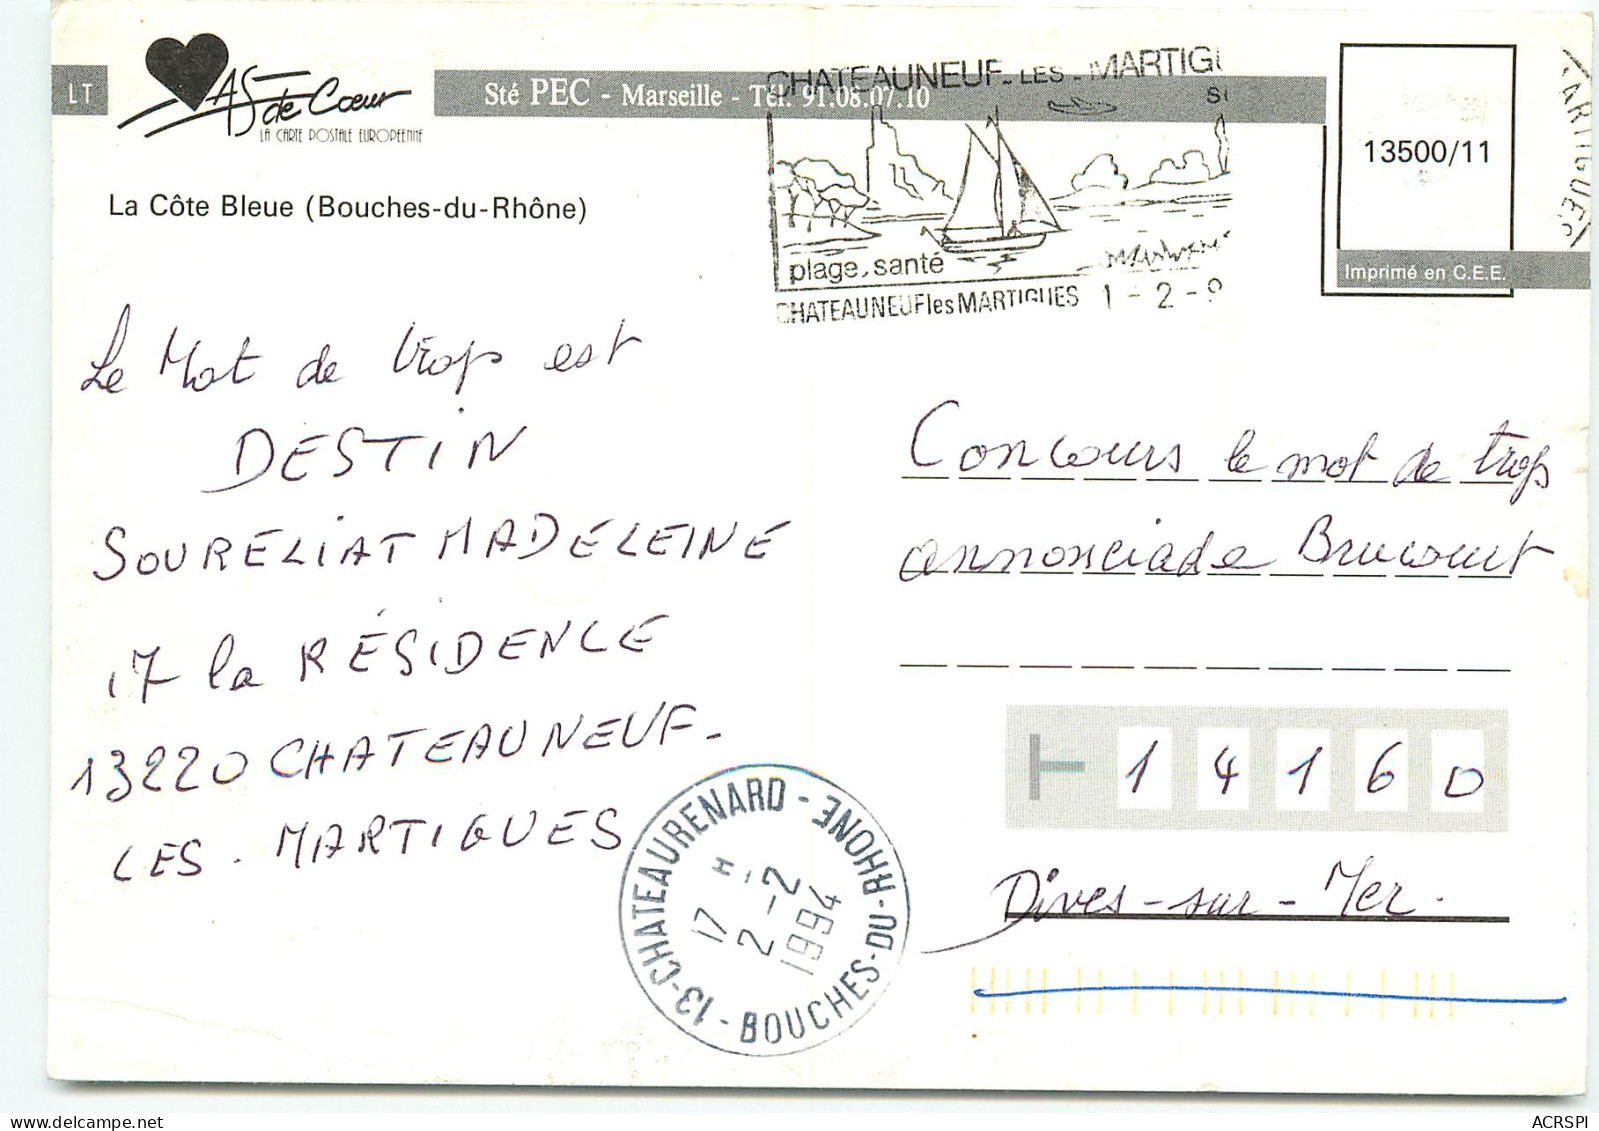 LT
AS de Cœur
LA CARTE POSTALE EUROPÉENNE
Sté PEC - Marseille - Tél. 91.08.07.10
La Côte Bleue (Bouches-du-Rhône)
CHATEAUNEUF-LES-MARTIGU
plage, santé
CHATEAUNEUF les MARTIGUES 1-2-9
13500/11
ARTIGUES
Imprimé en C.E.E.
Le Mot de trop est
DESTIN
SOURELIAT MADELEINE
17 la RÉSIDENCE
13220 CHATEAUNEUF-
LES-MARTIGUES
Concours le mot de trop
annonciade Brucourt
14160
Dives-sur-Mer.
13-CHATEAURENARD - BOUCHES-DU-RHONE
17 H
2-2
1994
ACRSPI